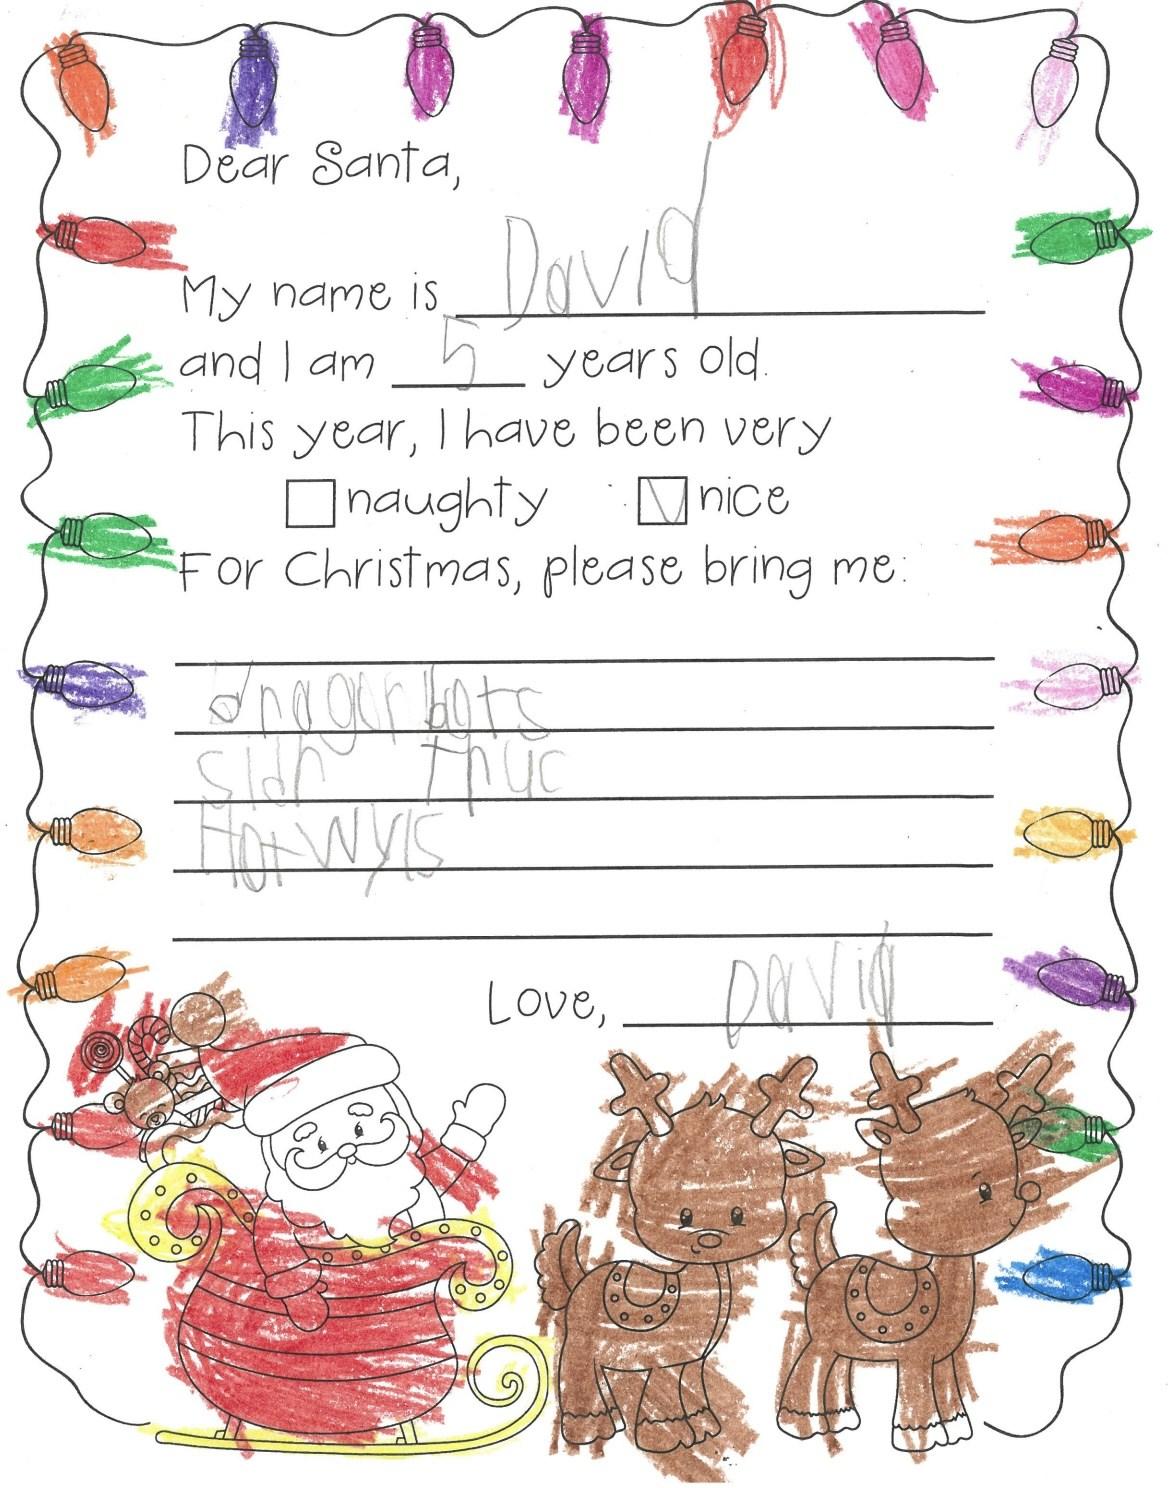 Dear Santa,
My name is David
and I am 5 years old.
This year, I have been very
naughty nice
For Christmas, please bring me:
dragon bots
sidn thuc
Hotwyls
Love, David